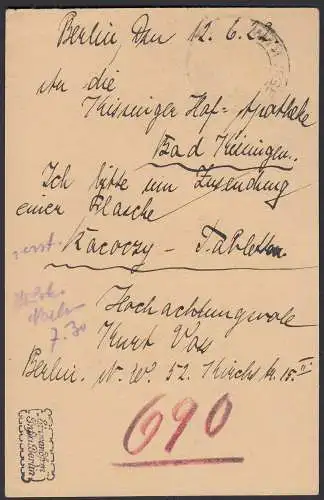 Berlin, den 12.6.22
An die
Kissinger Hof-Apotheke
Bad Kissingen.
Ich bitte um Zusendung
einer Flasche
Racoczy – Tabletten
Hochachtungsvoll
Kurt Voss
Berlin. N. W. 52. Kirchstr. 15 II
7.30
690